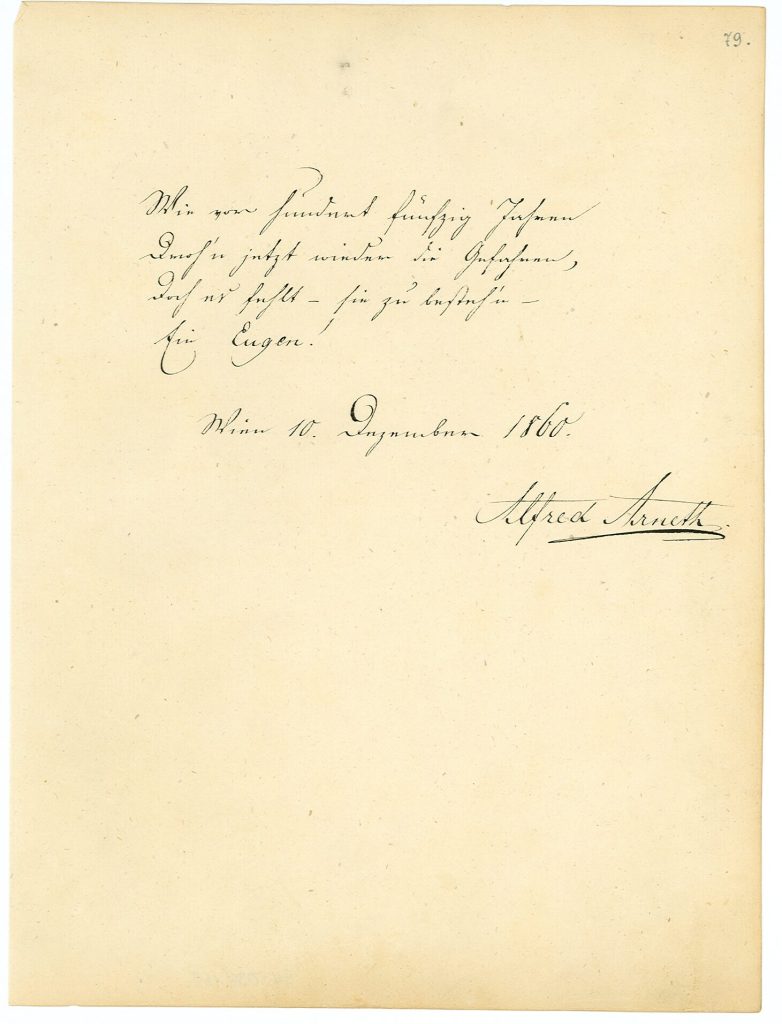 79.
Wie vor hundert fünfzig Jahren
Droh'n jetzt wieder die Gefahren,
Doch es fehlt – sie zu besteh'n –
Ein Eugen!
Wien 10. Dezember 1860.
Alfred Arneth